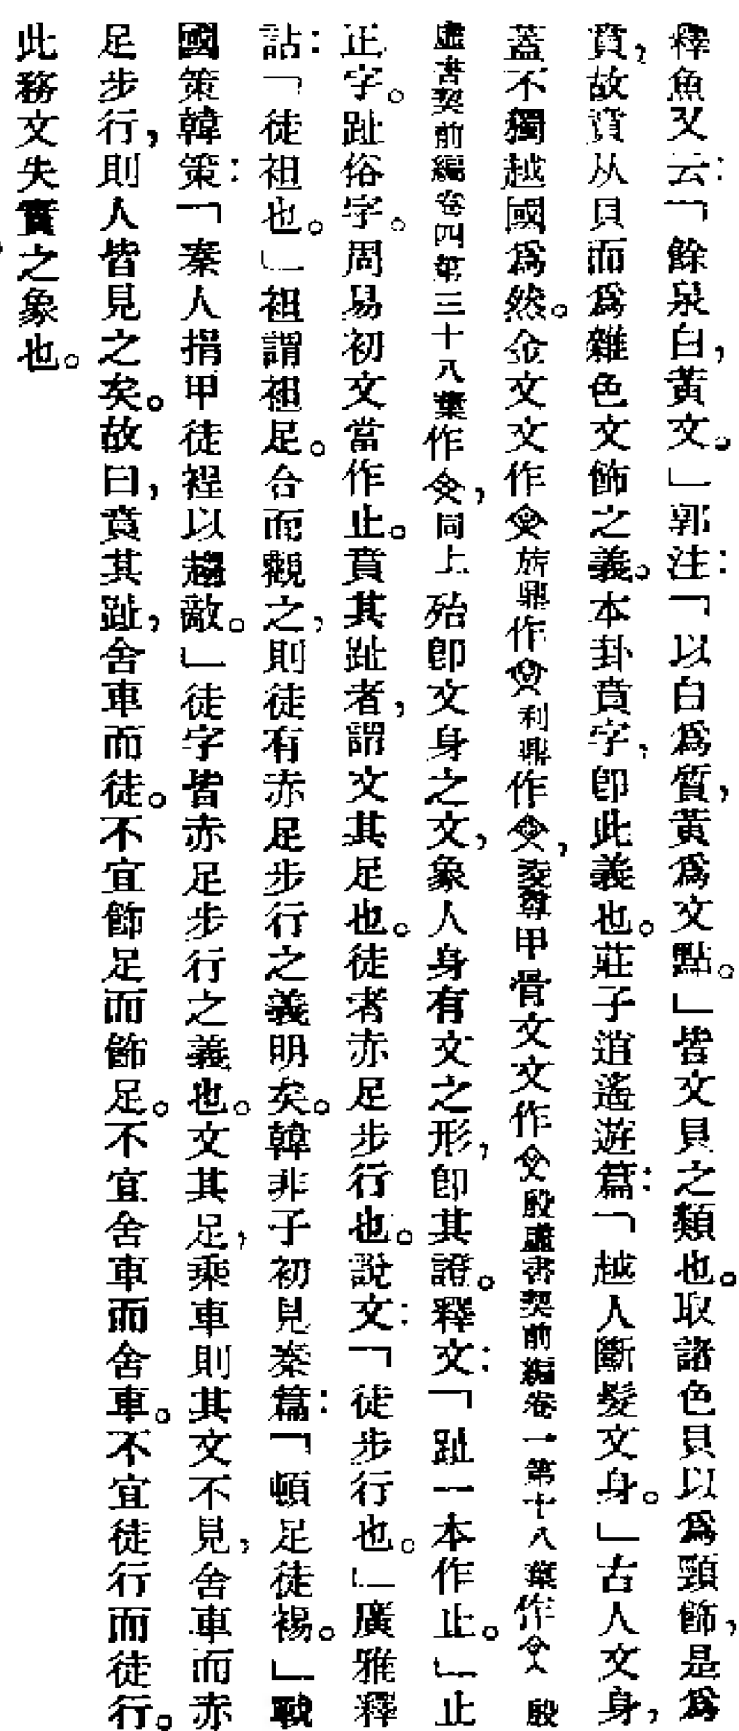 釋魚又云：「餘泉白，黃文。」郭注：「以白爲質，黃爲文點。」皆文貝之類也。取諸色貝以爲頸飾，是爲
賁，故賁从貝而爲雜色文飾之義。本卦賁字，卽此義也。莊子逍遙遊篇：「越人斷髮文身。」古人文身，
蓋不獨越國爲然。金文文作旂鼎作利鼎作，尊甲骨文文作殷虛書契前編卷一第十八葉作殷
虛書契前編卷四第三十八葉作，同上殆卽文身之文，象人身有文之形，卽其證。釋文：「趾一本作止。」止
正字。趾俗字。周易初文當作止。賁其趾者，謂文其足也。徒者赤足步行也。說文：「徒步行也。」廣雅釋
詁：「徒袒也。」袒謂袒足。合而觀之，則徒有赤足步行之義明矣。韓非子初見秦篇：「頓足徒裼。」戰
國策韓策：「秦人捐甲徒裎以趨敵。」徒字皆赤足步行之義也。文其足，乘車則其文不見，舍車而赤
足步行，則人皆見之矣。故曰，賁其趾，舍車而徒。不宜飾足而飾足。不宜舍車而舍車。不宜徒行而徒行。
此務文失實之象也。